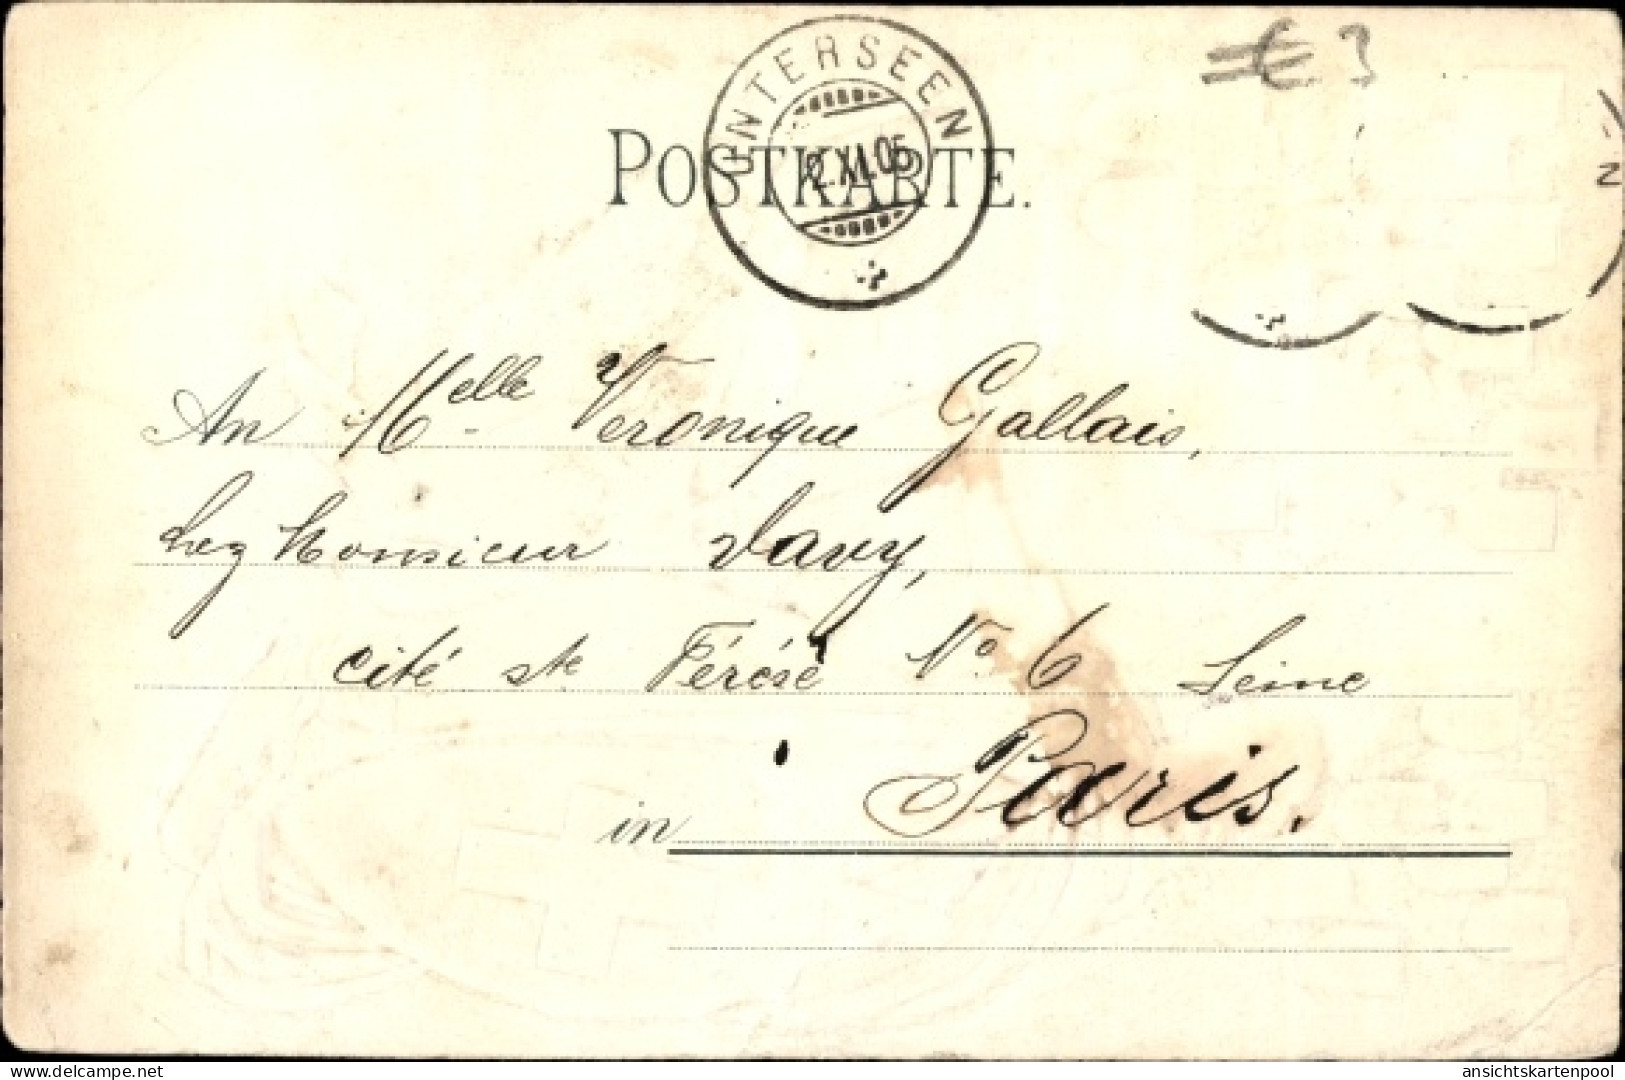 UNTERSEEN
2.XI.05
€ 3
POSTKARTE.
An Melle Veronique Gallais,
chez Monsieur Davy,
cité ste Térèse No 6 Seine
in Paris.
www.delcampe.net
ansichtskartenpool